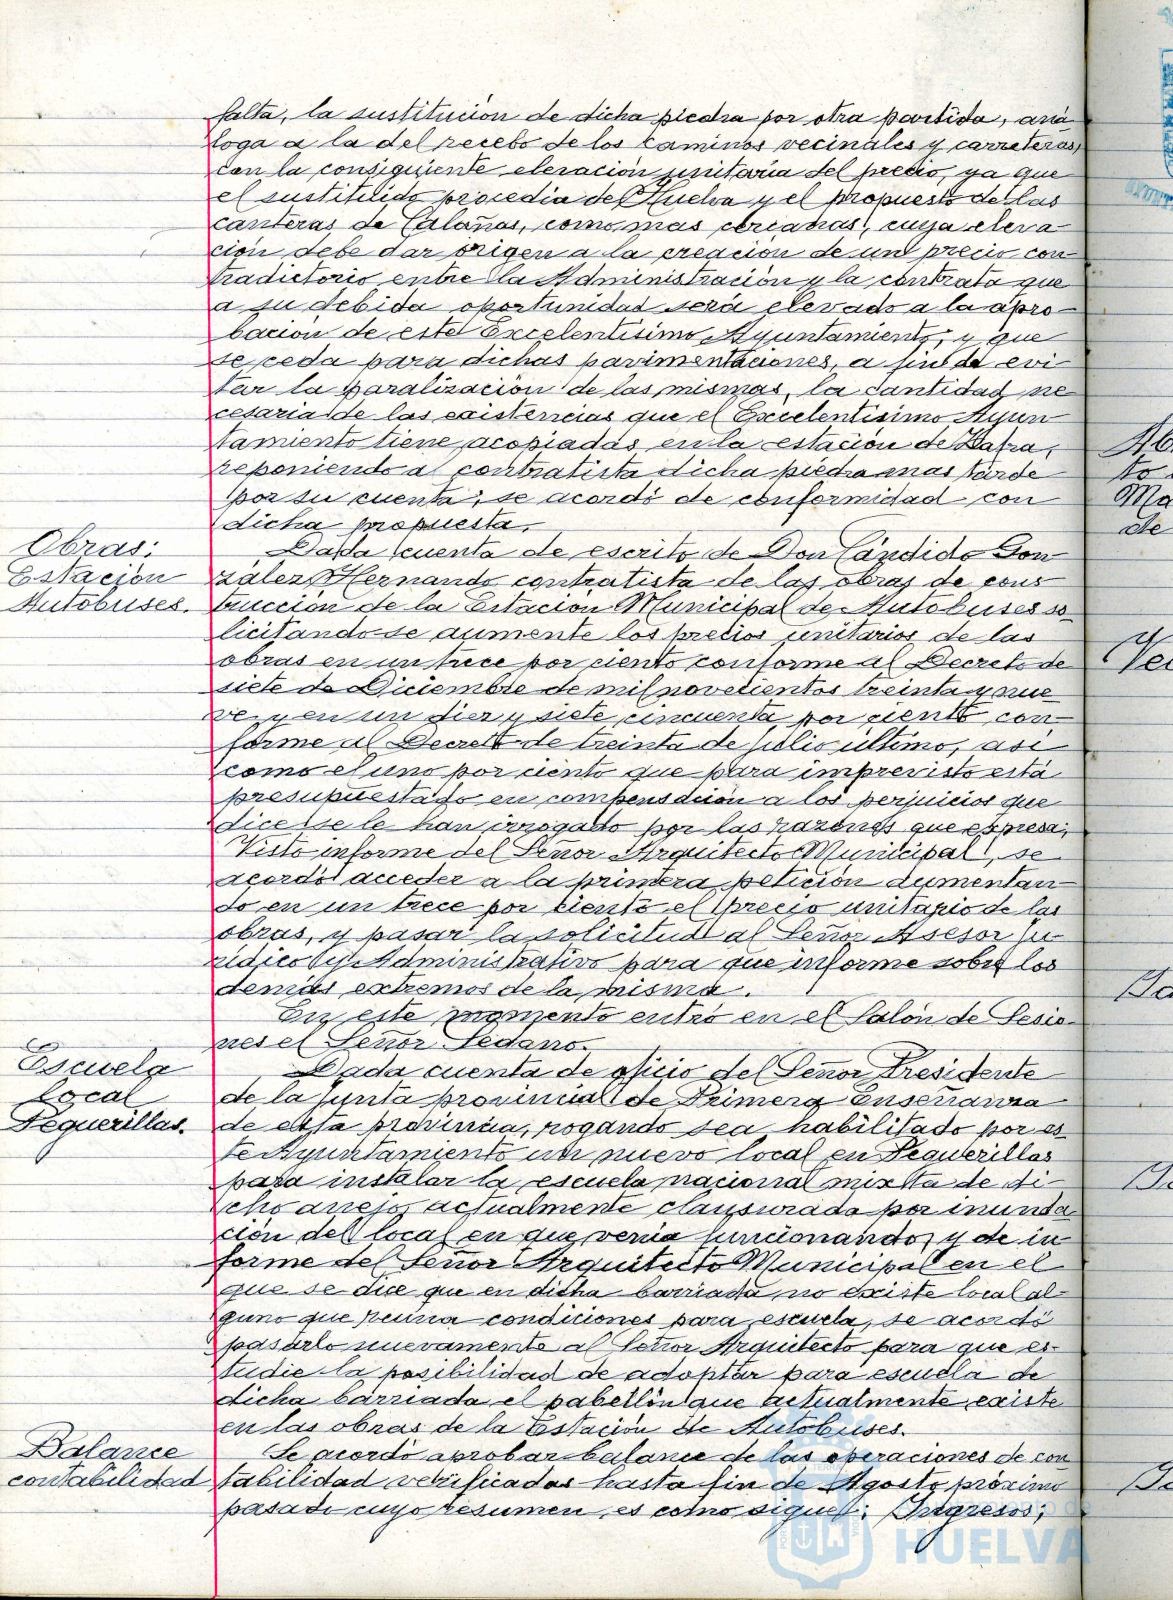 falta, la sustitución de dicha piedra por otra partida, aná
loga a la del recebo de los caminos vecinales y carreteras,
con la consiguiente elevación unitaria del precio, ya que
el sustituido procedia de Huelva y el propuesto de las
canteras de Calañas, como mas cercanas, cuya eleva-
ción debe dar origen a la creación de un precio con-
tradictorio entre la Administración y la contrata que
a su debida oportunidad será elevado a la apro-
bación de este Excelentísimo Ayuntamiento; y que
se ceda para dichas pavimentaciones, a fin de evi-
tar la paralización de las mismas, la cantidad ne
cesaria de las existencias que el Excelentísimo Ayun
tamiento tiene acopiadas en la estación de Zafra,
reponiendo al contratista dicha piedra mas tarde
por su cuenta; se acordó de conformidad con
dicha propuesta.
Obras:
Estación
Autobuses.
Dada cuenta de escrito de Don Cándido Gon
zález Hernando contratista de las obras de cons
trucción de la Estación Municipal de Autobuses so-
licitando se aumente los precios unitarios de las
obras en un trece por ciento conforme al Decreto de
siete de Diciembre de mil novecientos treinta y nue
ve, y en un diez y siete, cincuenta por ciento con-
forme al Decreto de treinta de Julio último, así
como el uno por ciento que para imprevisto está
presupuestado en compensación a los perjuicios que
dice se le han irrogado por las razones que expresa;
Visto informe del Señor Arquitecto Municipal, se
acordó acceder a la primera petición aumentan-
do en un trece por ciento el precio unitario de las
obras, y pasar la solicitud al Señor Asesor Ju-
rídico y Administrativo para que informe sobre los
demás extremos de la misma.
En este momento entró en el Salón de Sesio-
nes el Señor Sedano.
Escuela
Local
Peguerillas.
Dada cuenta de oficio del Señor Presidente
de la Junta provincial de Primera Enseñanza
de esta provincia, rogando sea habilitado por es
te Ayuntamiento un nuevo local en Peguerillas
para instalar la escuela nacional mixta de di-
cho anejo, actualmente clausurada por inunda
ción del local en que venia funcionando, y de in
forme del Señor Arquitecto Municipal en el
que se dice que en dicha barriada no existe local al-
guno que reuna condiciones para escuela, se acordó
pasarlo nuevamente al Señor Arquitecto para que es-
tudie la posibilidad de adoptar para escuela de
dicha barriada el pabellón que actualmente existe
en las obras de la Estación de Autobuses.
Balance
contabilidad
Se acordó aprobar balance de las operaciones de con
tabilidad verificadas hasta fin de Agosto próximo
pasado cuyo resumen es como sigue: Ingresos;
HUELVA